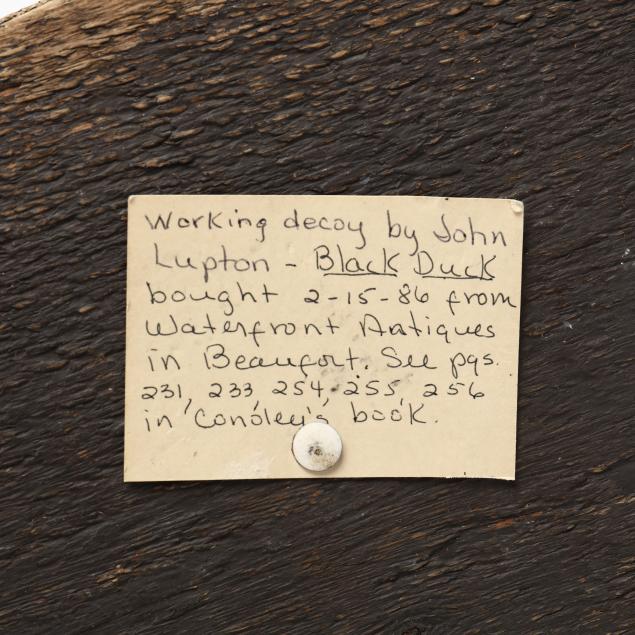 Working decoy by John
Lupton - Black Duck
bought 2-15-86 from
Waterfront Antiques
in Beaufort. See pgs.
231, 233, 254, 255, 256
in Conoley's book.